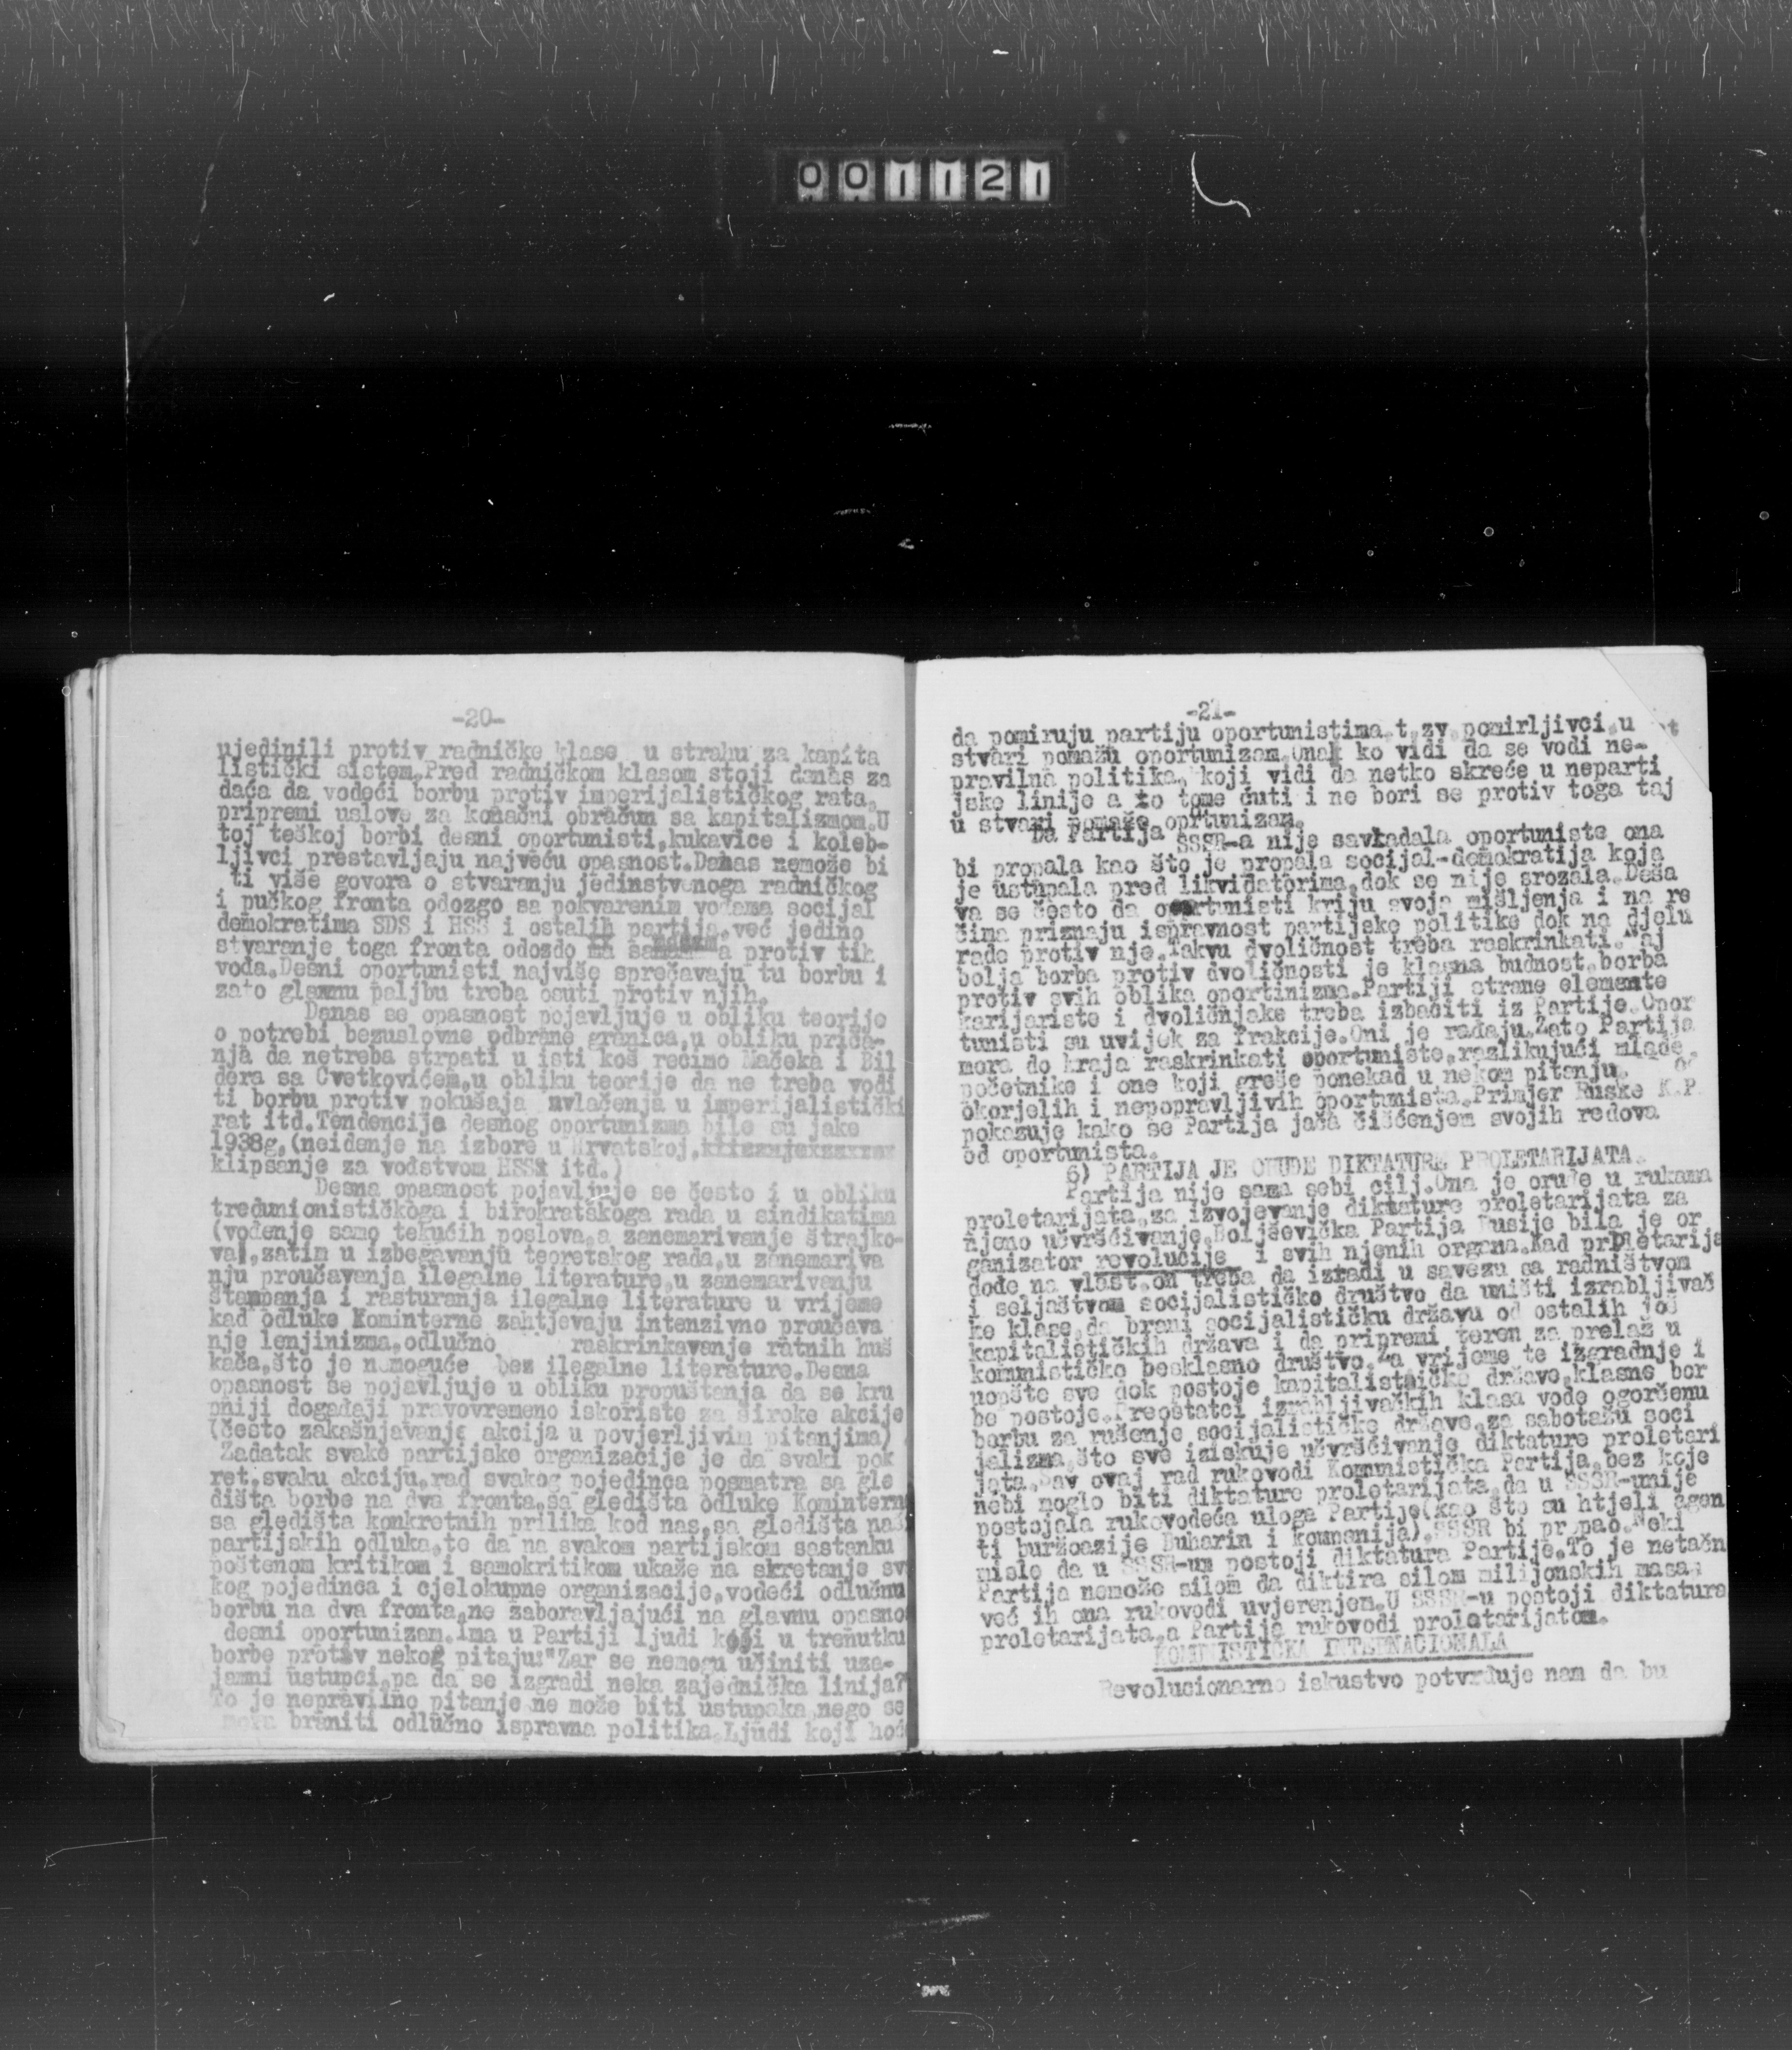 001121
-20-
ujedinili protiv radničke klase u strahu za kapita
listički sistem.Pred radničkom klasom stoji danas za
daća da vodeći borbu protiv imperijalističkog rata,
pripremi uslove za konačni obračun sa kapitalizmom.U
toj teškoj borbi desni oportunisti,kukavice i koleb-
ljivci prestavljaju najveću opasnost.Danas nemože bi
ti više govora o stvaranju jedinstvenoga radničkog
i pučkog fronta odozgo sa pokvarenim vođama socijal
demokratima SDS i HSS i ostalih partija,već jedino
stvaranje toga fronta odozdo sa a protiv tih
vođa.Desni oportunisti najviše sprečavaju tu borbu i
zato glavnu paljbu treba osuti protiv njih.
Danas se opasnost pojavljuje u obliku teorije
o potrebi bezuslovne odbrane granica,u obliku priča-
nja da netreba strpati u isti koš recimo Mačeka i Bil
dera sa Cvetkovićem,u obliku teorije da ne treba vodi
ti borbu protiv pokušaja uvlačenja u imperijalistički
rat itd.Tendencije desnog oportunizma bile su jake
1938g.(neiđenje na izbore u Hrvatskoj,
klipsanje za vođstvom HSSa itd.)
Desna opasnost pojavljuje se često i u obliku
tredunionističkoga i birokratskoga rada u sindikatima
(vođenje samo tekućih poslova,a zanemarivanje štrajko-
va),zatim u izbegavanju teoretskog rada,u zanemariva
nju proučavanja ilegalne literature,u zanemarivanju
štampanja i rasturanja ilegalne literature u vrijeme
kad odluke Kominterne zahtjevaju intenzivno proučava
nje lenjinizma,odlučno raskrinkavanje ratnih huš
kača,što je nemoguće bez ilegalne literature.Desna
opasnost se pojavljuje u obliku propuštanja da se kru
pniji događaji pravovremeno iskoriste za široke akcije
(često zakašnjavanje akcija u povjerljivim pitanjima)
Zadatak svake partijske organizacije je da svaki pok
ret,svaku akciju,rad svakog pojedinca posmatra sa gle
dišta borbe na dva fronta,sa gledišta odluke Komintern
sa gledišta konkretnih prilika kod nas,sa gledišta naš
partijskih odluka,te da na svakom partijskom sastanku
poštenom kritikom i samokritikom ukaže na skretanje sv
kog pojedinca i cjelokupne organizacije,vodeći odlučnu
borbu na dva fronta,ne zaboravljajući na glavnu opasno
desni oportunizam.Ima u Partiji ljudi koji u trenutku
borbe protiv nekog pitaju:"Zar se nemogu učiniti uza-
jamni ustupci,pa da se izgradi neka zajednička linija?
To je nepravilno pitanje,ne može biti ustupaka,nego se
mora braniti odlučno ispravna politika.Ljudi koji hoć
-21-
da pomiruju partiju oportunistima t.zv.pomirljivci,u
stvari pomažu oportunizam.Onak ko vidi da se vodi ne-
pravilna politika, koji vidi da netko skreće u neparti
jske linije a to tome ćuti i ne bori se protiv toga taj
u stvari pomaže oprtunizam.
Da Partija SSSR-a nije savladala oportuniste ona
bi propala kao što je propala socijal-demokratija koja
je ustupala pred likvidatorima,dok se nije srozala.Deša
va se često da oportunisti kriju svoja mišljenja i na re
čima priznaju ispravnost partijske politike dok na djelu
rade protiv nje.Takvu dvoličnost treba raskrinkati.Naj
bolja borba protiv dvoličnosti je klasna budnost,borba
protiv svih oblika oportinizma.Partiji strane elemente
karijariste i dvoličnjake treba izbaciti iz Partije.Opor
tunisti su uvijek za frakcije.Oni je rađaju.Zato Partija
mora do kraja raskrinkati oportuniste,razlikujući mlade
početnike i one koji greše ponekad u nekom pitanju, od
okorjelih i nepopravljivih oportunista.Primjer Ruske K.P
pokazuje kako se Partija jača čišćenjem svojih redova
od oportunista.
6) PARTIJA JE ORUĐE DIKTATURE PROLETARIJATA.
Partija nije sama sebi cilj.Ona je oruđe u rukama
proletarijata,za izvojevanje diktature proletarijata za
njeno učvršćivanje.Boljševička Partija Rusije bila je or
ganizator revolucije i svih njenih organa.Kad proletarija
dođe na vlast,on treba da izradi u savezu sa radništvom
i seljaštvom socijalističko društvo da uništi izrabljivač
ke klase,da brani socijalističku državu od ostalih još
kapitalističkih država i da pripremi teren za prelaz u
kommističko besklasno društvo.Za vrijeme te izgradnje i
uopšte sve dok postoje kapitalističke države,klasne bor
be postoje.Preostatci izrabljivačkih klasa vode ogorčenu
borbu za rušenje socijalističke države,za sabotažu soci
jalizma,što sve iziskuje učvršćivanje diktature proletari
jata.Sav ovaj rad rukovodi Kommistička Partija,bez koje
nebi moglo biti diktature proletarijata,da u SSSR-unije
postojala rukovodeća uloga Partije(kao što su htjeli agen
ti buržoazije Buharin i kompanija),SSSR bi propao.Neki
misle da u SSSR-um postoji diktatura Partije.To je netačn
Partija nemože silom da diktira silom milijonskih masa,
već ih ona rukovodi uvjerenjem.U SSSR-u postoji diktatura
proletarijata,a Partija rukovodi proletarijatom.
KOMUNISTIČKA INTERNACIONALA
Revolucionarno iskustvo potvrđuje nam da bu